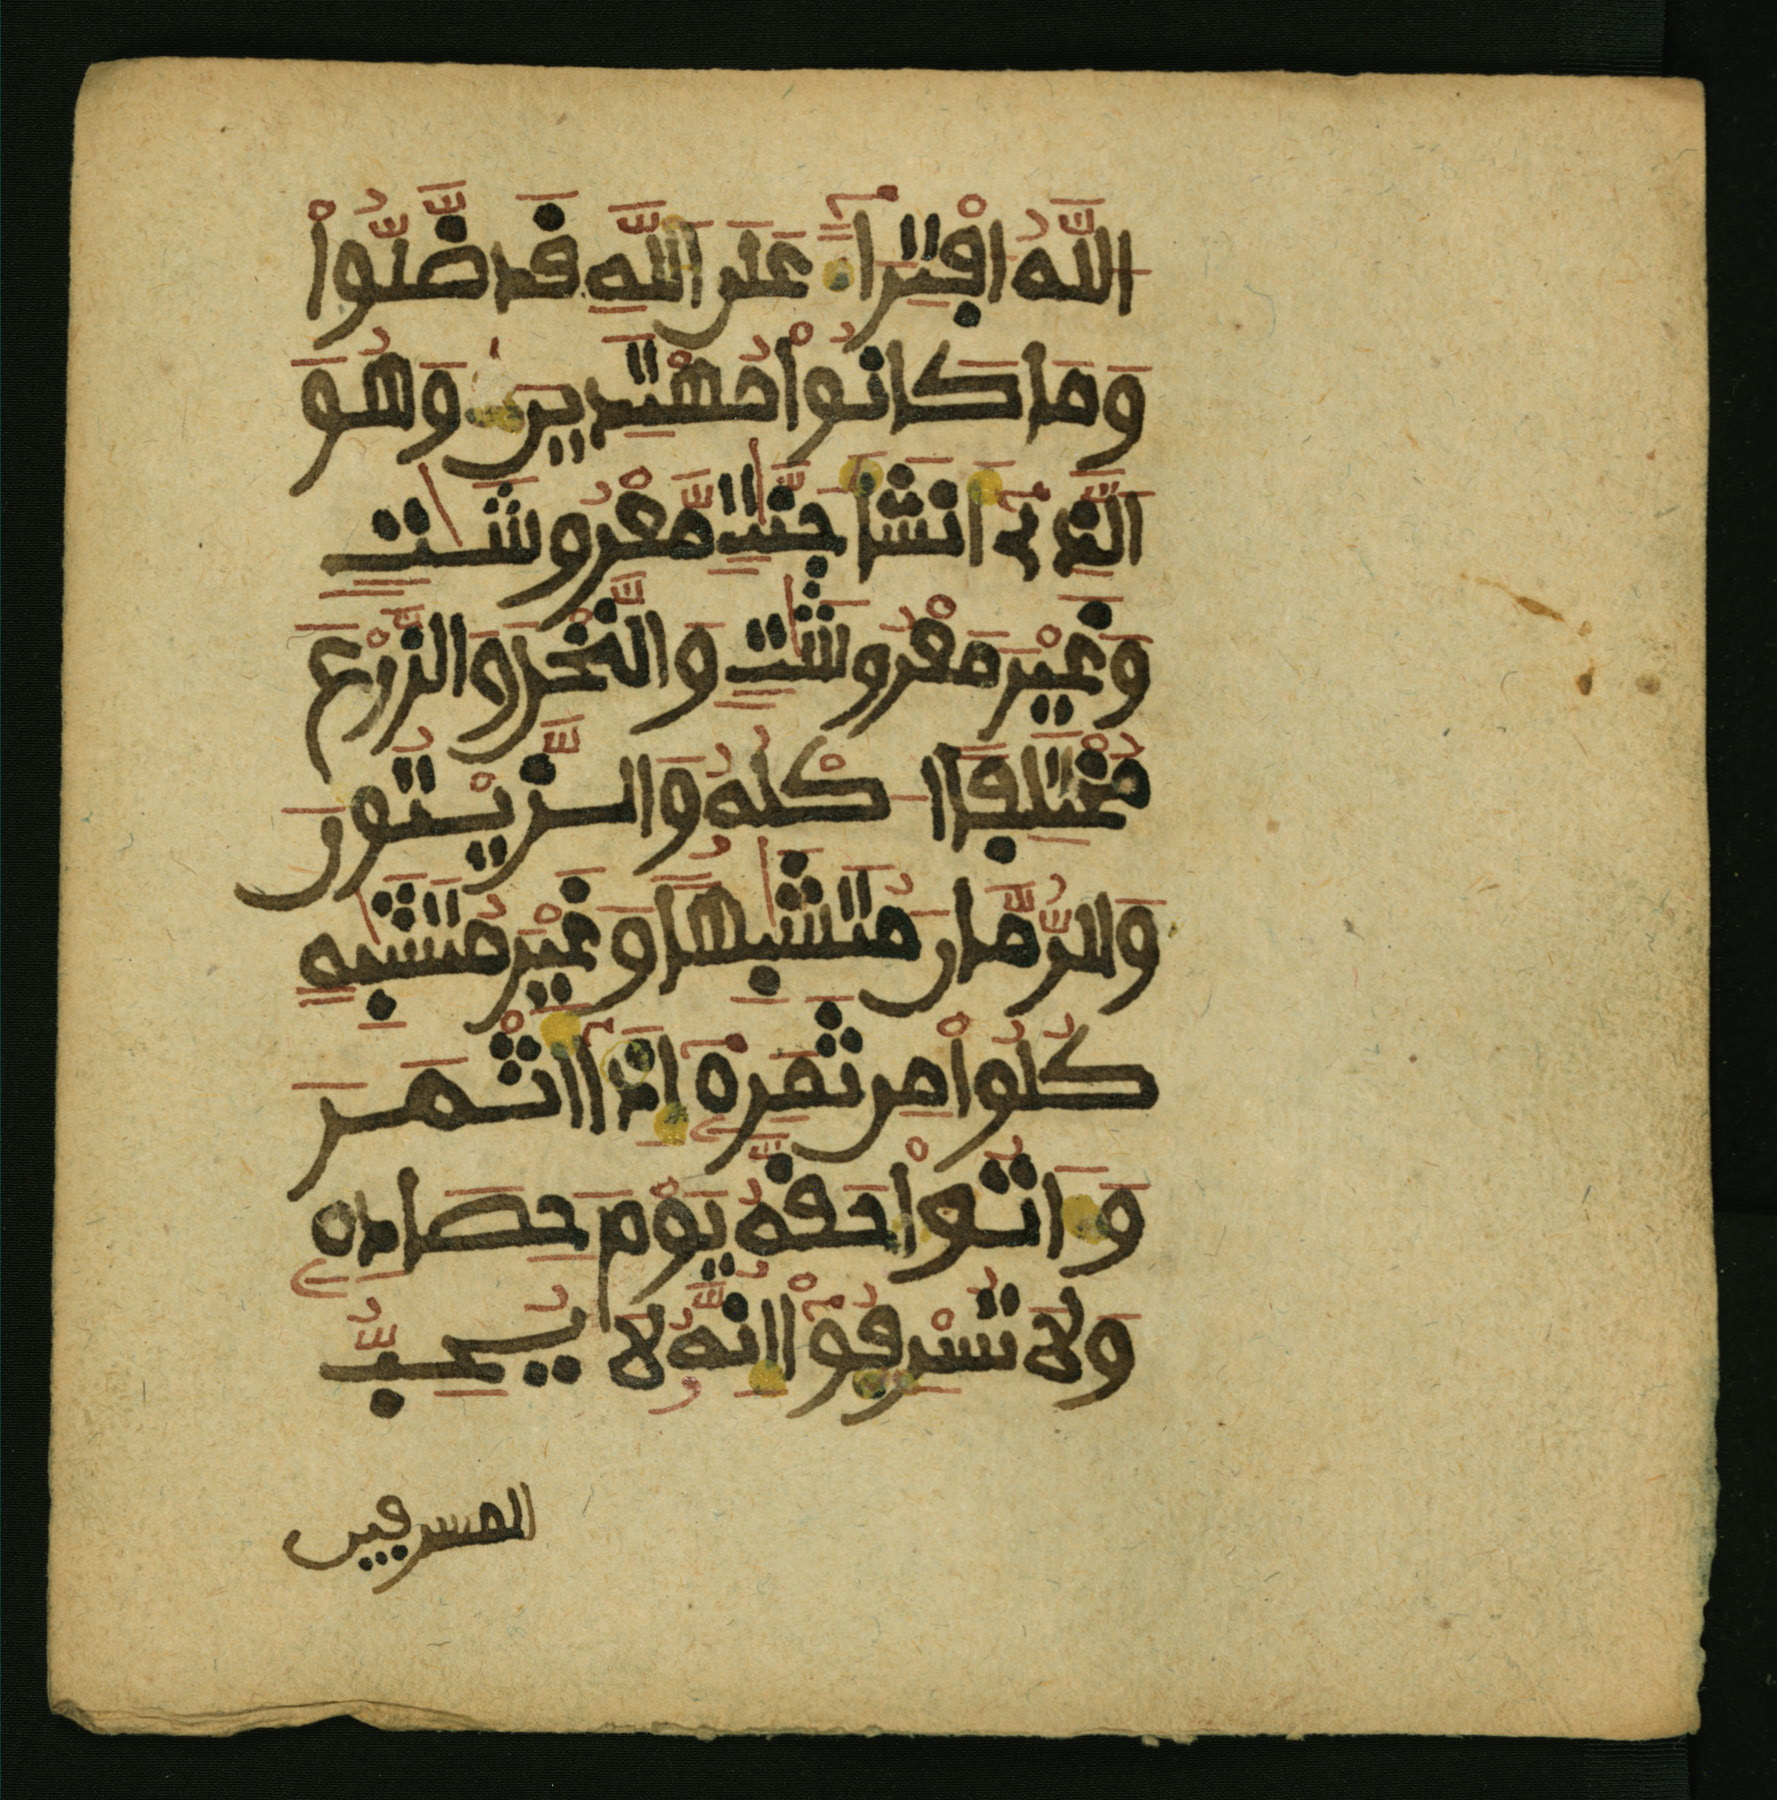 اللَّهُ افْتِرَآءً عَلَى اللَّهِ قَد ضَّلُّواْ
وَمَا كَانُواْ مُهْتَدِينَ وَهُوَ
الَّذِى أَنشَأَ جَنَّٰتٍ مَّعْرُوشَٰتٍ
وَغَيْرَ مَعْرُوشَٰتٍ وَالنَّخْلَ وَالزَّرْعَ
مُخْتَلِفًا اكْلُهُ وَالزَّيْتُونَ
وَالرُّمَّانَ مُتَشَٰبِهًا وَغَيْرَ مُتَشَٰبِهٍ
كُلُواْ مِن ثَمَرِهِ إِذَا أَثْمَرَ
وَءَاتُواْ حَقَّهُ يَوْمَ حِصَادِهِ
وَلَا تُسْرِفُواْ إِنَّهُ لَا يُحِبُّ
المسرفين